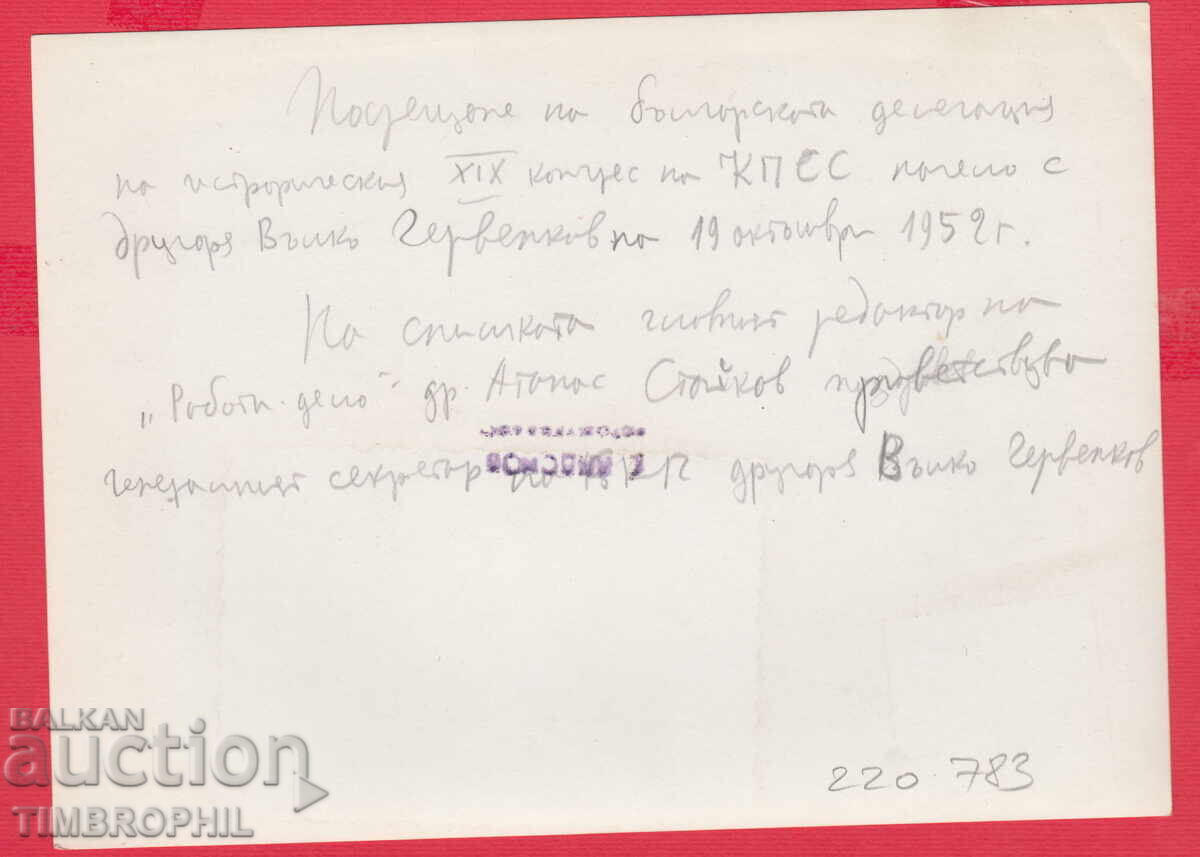 Посрещане на българската делегация
на историческия XIX конгрес на КПСС начело с
другаря Вълко Червенков на 19 октомври 1952 г.
На снимката главният редактор на
„Работн. дело" др. Атанас Стойков приветствува
генералният секретар на БКП другаря Вълко Червенков
220 783
BALKAN
auction
TIMBROPHIL